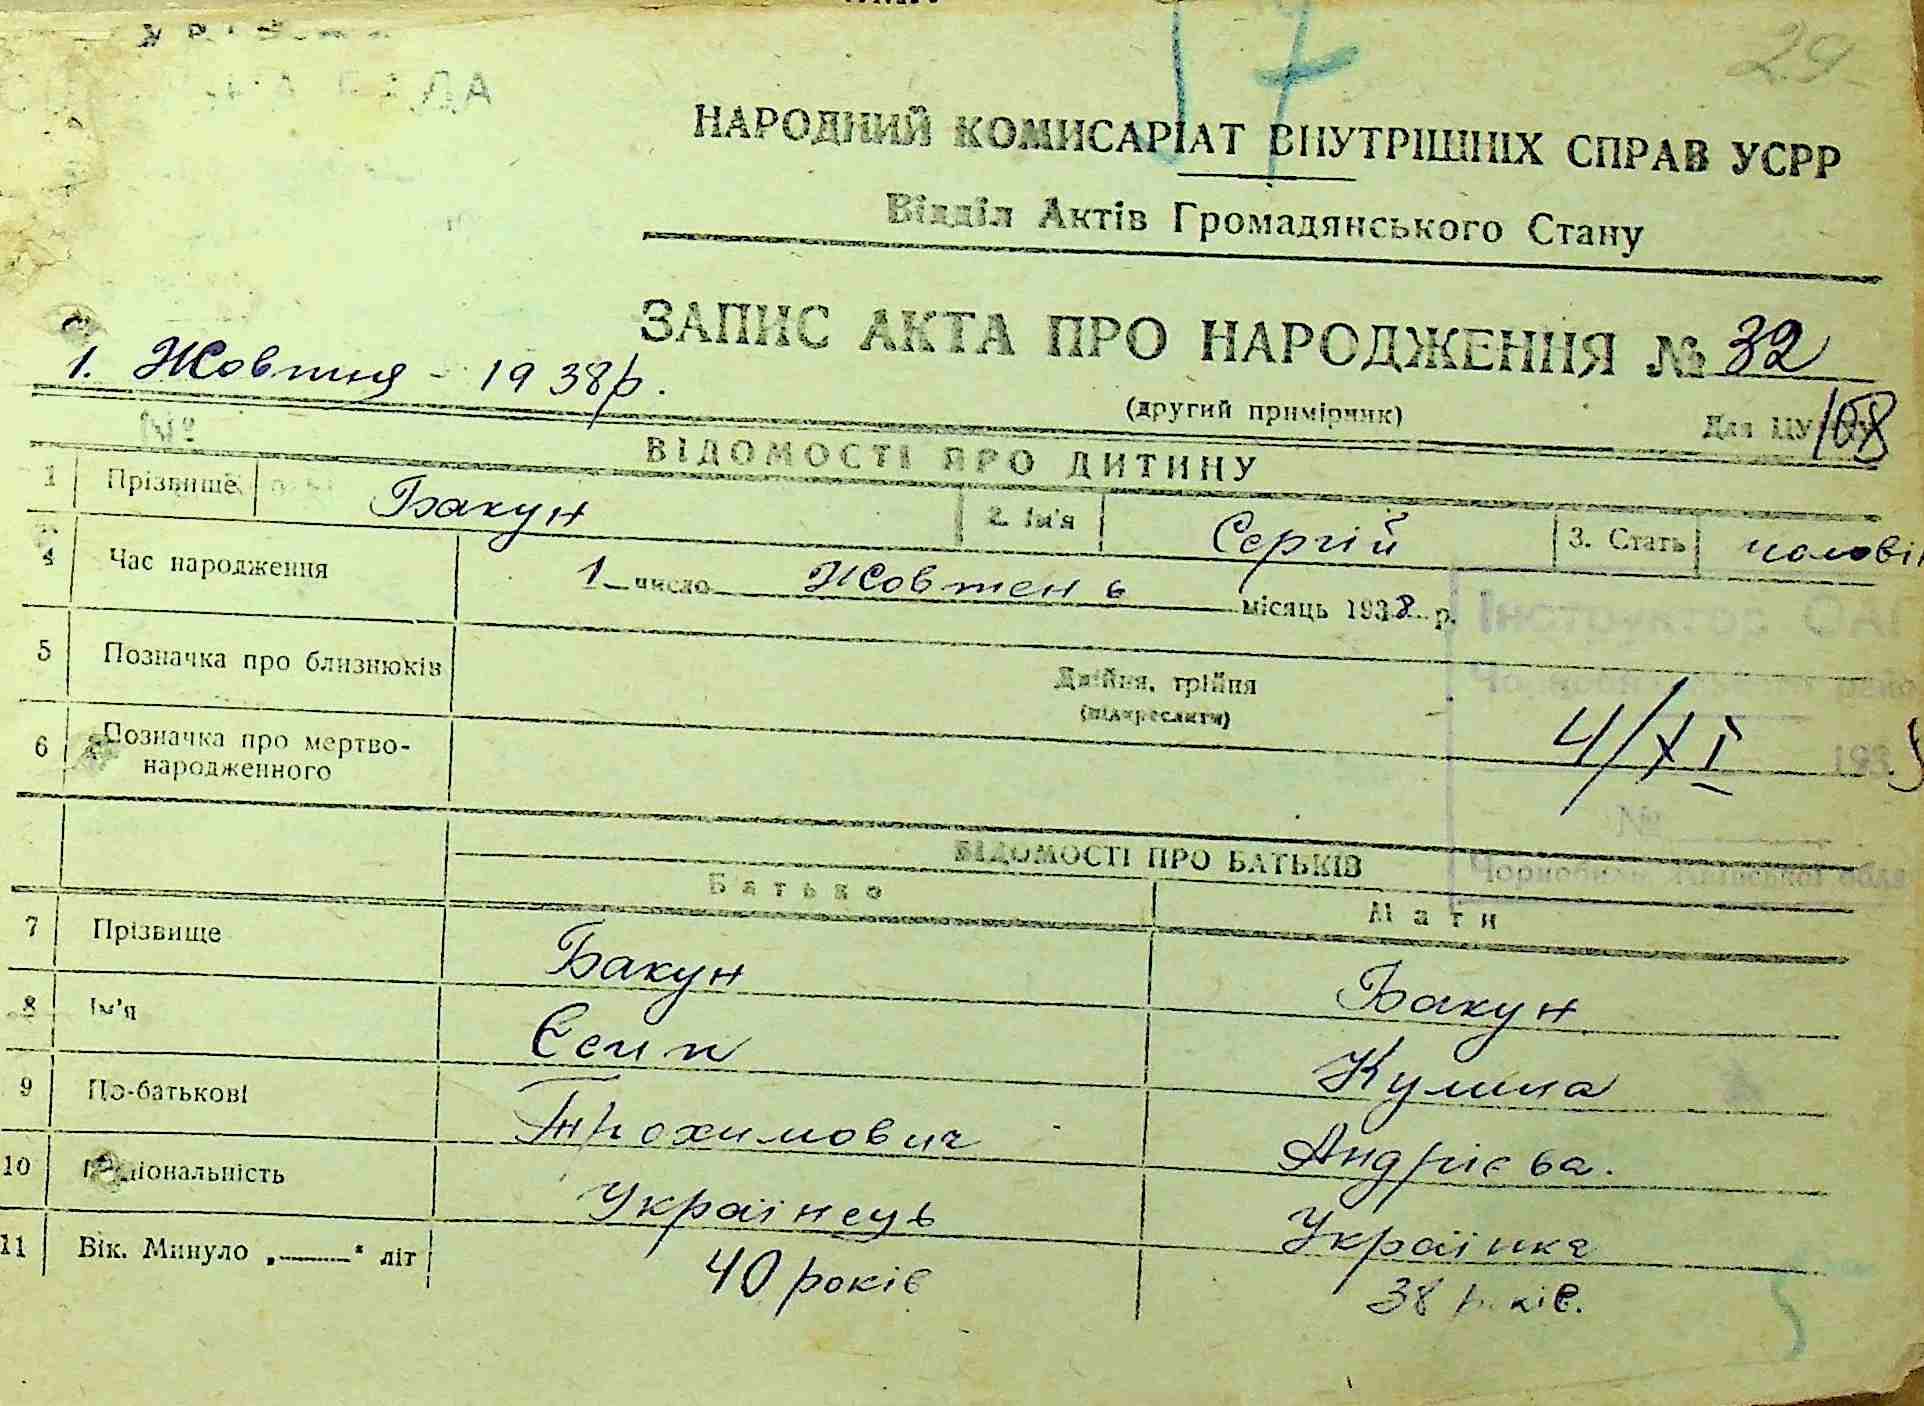 17
29
НАРОДНИЙ КОМИСАРІАТ ВНУТРІШНІХ СПРАВ УСРР
Відділ Актів Громадянського Стану
ЗАПИС АКТА ПРО НАРОДЖЕННЯ № 32
1. Жовтня - 1938р.
(другий примірник) Для ЦУ 108
№ ВІДОМОСТІ ПРО ДИТИНУ
1 Прізвище Бакун 2. Ім'я Сергій 3. Стать чолові
4 Час народження 1 число Жовтень місяць 1938 р.
Інструктор ОАГ
5 Позначка про близнюків Двійня, трійня
(підкреслити)
6 Позначка про мертво-
народженного
4/XI 193
№
ВІДОМОСТІ ПРО БАТЬКІВ
Чорнобиль, Київської обл
Батько Мати
7 Прізвище Бакун Бакун
8 Ім'я Єсип Кулина
9 По-батькові Трохимович Андрієва.
10 Національність Українець Українка
11 Вік. Минуло „——" літ 40 років 38 років.